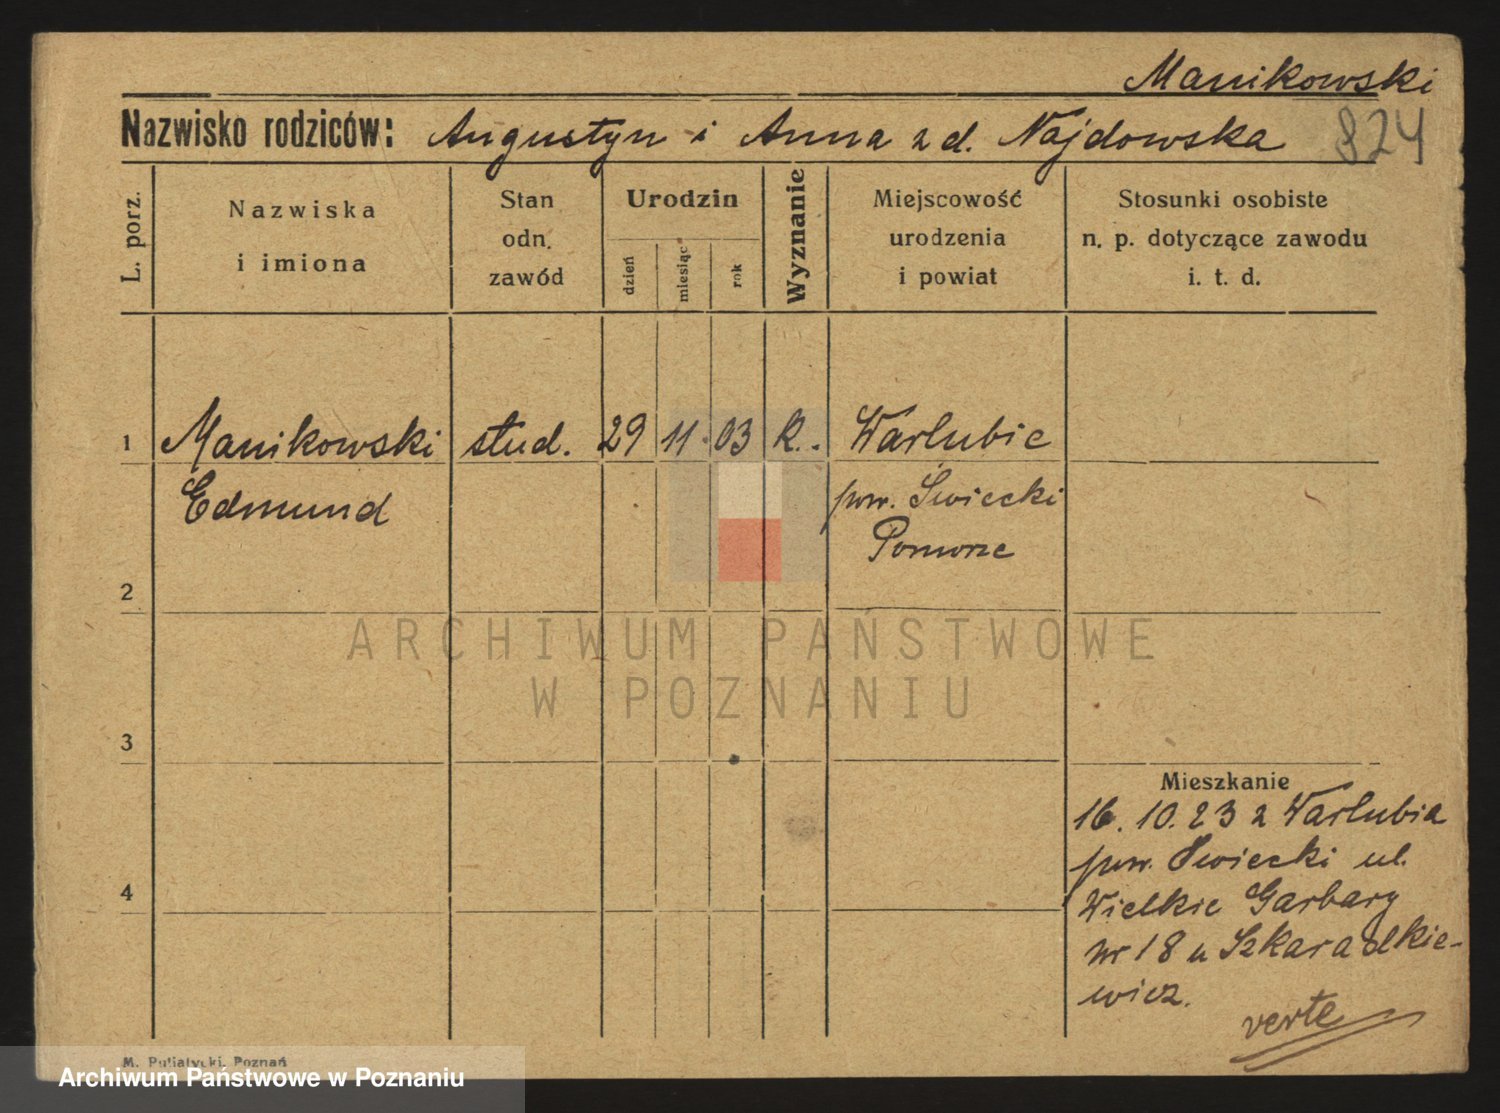 Manikowski
Nazwisko rodziców: Augustyn i Anna z d. Najdowska 824
L. porz.
Nazwiska
i imiona
Stan
odn.
zawód
Urodzin
dzień
miesiąc
rok
Wyznanie
Miejscowość
urodzenia
i powiat
Stosunki osobiste
n. p. dotyczące zawodu
i. t. d.
1 Manikowski stud. 29 11. 03 k. Warlubie
Edmund pow. Świecki
Pomorze
2
ARCHIWUM PAŃSTWOWE
W POZNANIU
3
Mieszkanie
16. 10. 23 z Warlubia
pow. Świecki ul.
4 Wielkie Garbary
nr 18 u Szkaradkie-
ewicz.
verte
M. Putiatycki, Poznań
Archiwum Państwowe w Poznaniu